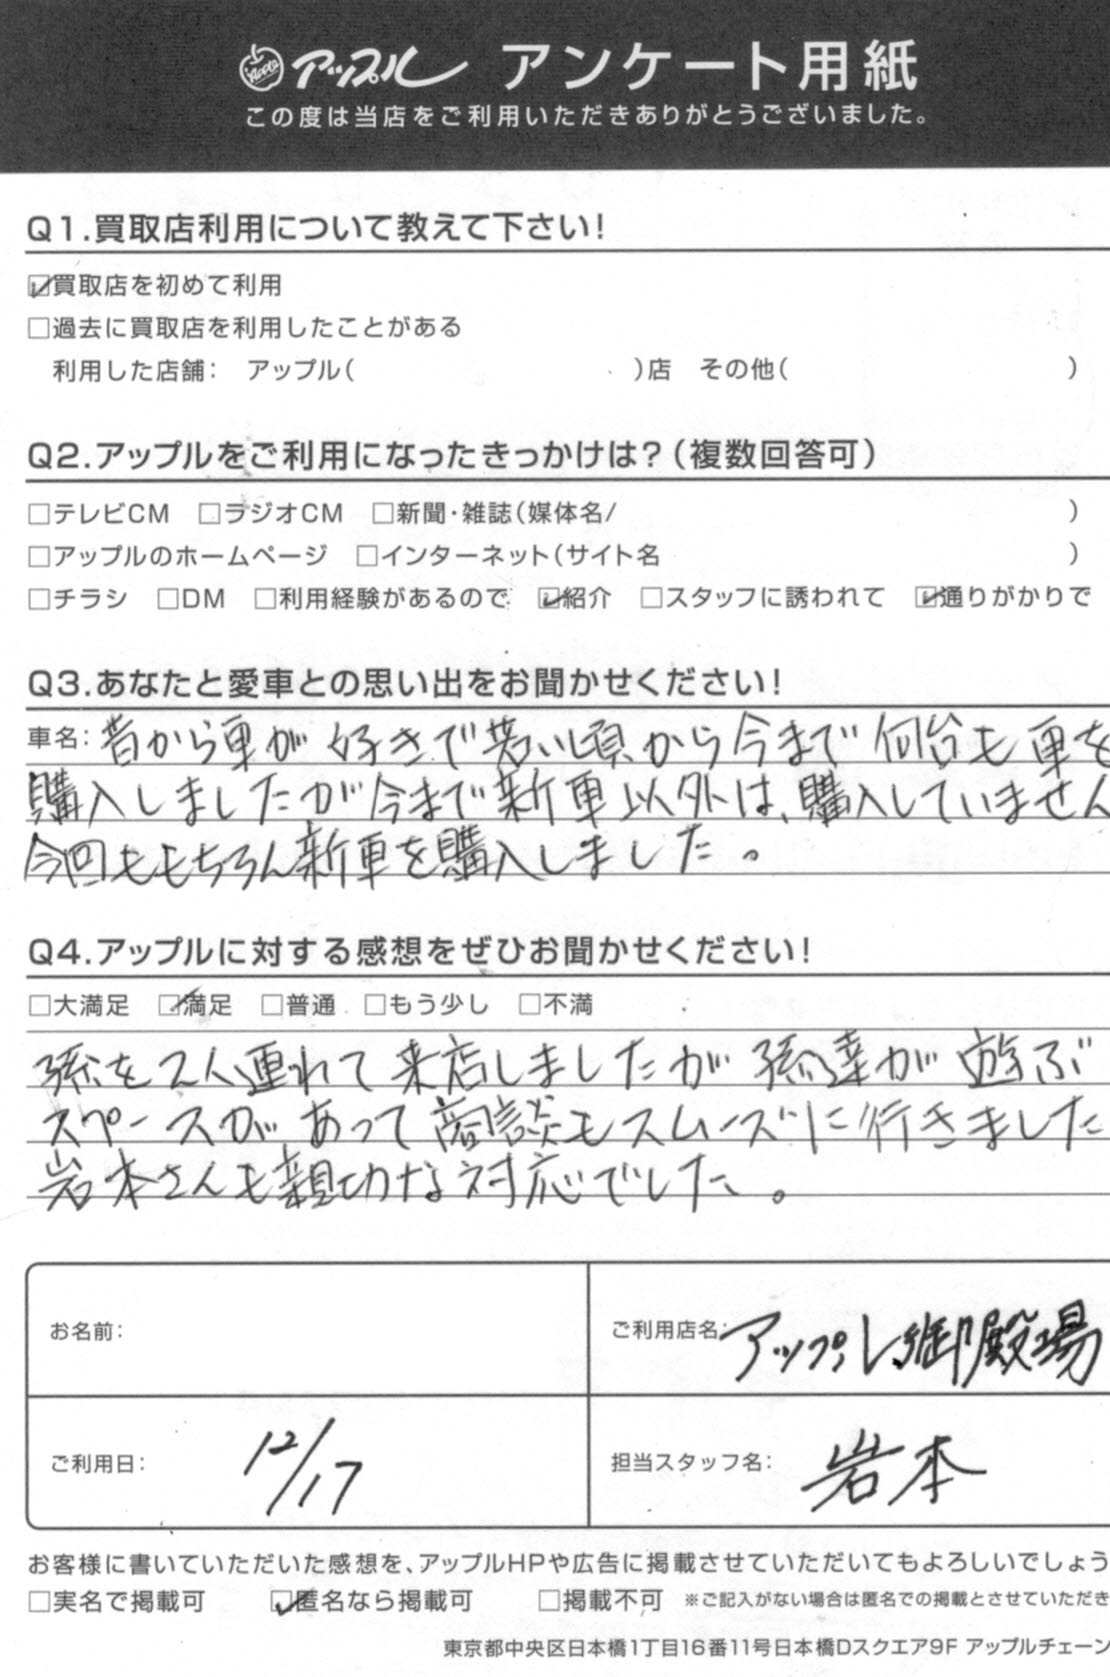 Apple アップル アンケート用紙
この度は当店をご利用いただきありがとうございました。
Q1.買取店利用について教えて下さい!
☑買取店を初めて利用
□過去に買取店を利用したことがある
利用した店舗: アップル( )店 その他( )
Q2.アップルをご利用になったきっかけは?(複数回答可)
□テレビCM □ラジオCM □新聞・雑誌(媒体名/ )
□アップルのホームページ □インターネット(サイト名 )
□チラシ □DM □利用経験があるので ☑紹介 □スタッフに誘われて ☑通りがかりで
Q3.あなたと愛車との思い出をお聞かせください!
車名: 昔から車が好きで若い頃から今まで何台も車を
購入しましたが今まで新車以外は、購入していません
今回ももちろん新車を購入しました。
Q4.アップルに対する感想をぜひお聞かせください!
□大満足 ☑満足 □普通 □もう少し □不満
孫を2人連れて来店しましたが孫達が遊ぶ
スペースがあって商談もスムーズに行きました
岩本さんも親切な対応でした。
お名前:
ご利用店名: アップル御殿場
ご利用日: 12/17
担当スタッフ名: 岩本
お客様に書いていただいた感想を、アップルHPや広告に掲載させていただいてもよろしいでしょう
□実名で掲載可 ☑匿名なら掲載可 □掲載不可 ※ご記入がない場合は匿名での掲載とさせていただき
東京都中央区日本橋1丁目16番11号日本橋Dスクエア9F アップルチェーン